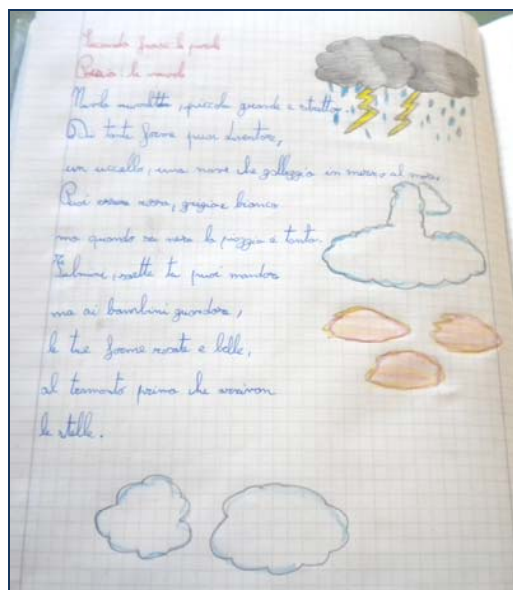 Facendo fuori le parole
Poesia: le nuvole
Nuvola nuvoletta, piccola grande e stretta.
Di tante forme puoi diventare,
un uccello, una nave che galleggia in mezzo al mare.
Puoi essere rosa, grigia e bianca
ma quando sei nera la pioggia è tanta.
Fulmini, saette tu puoi mandare
ma ai bambini guardare,
le tue forme rosate e belle,
al tramonto prima che arrivan
le stelle.